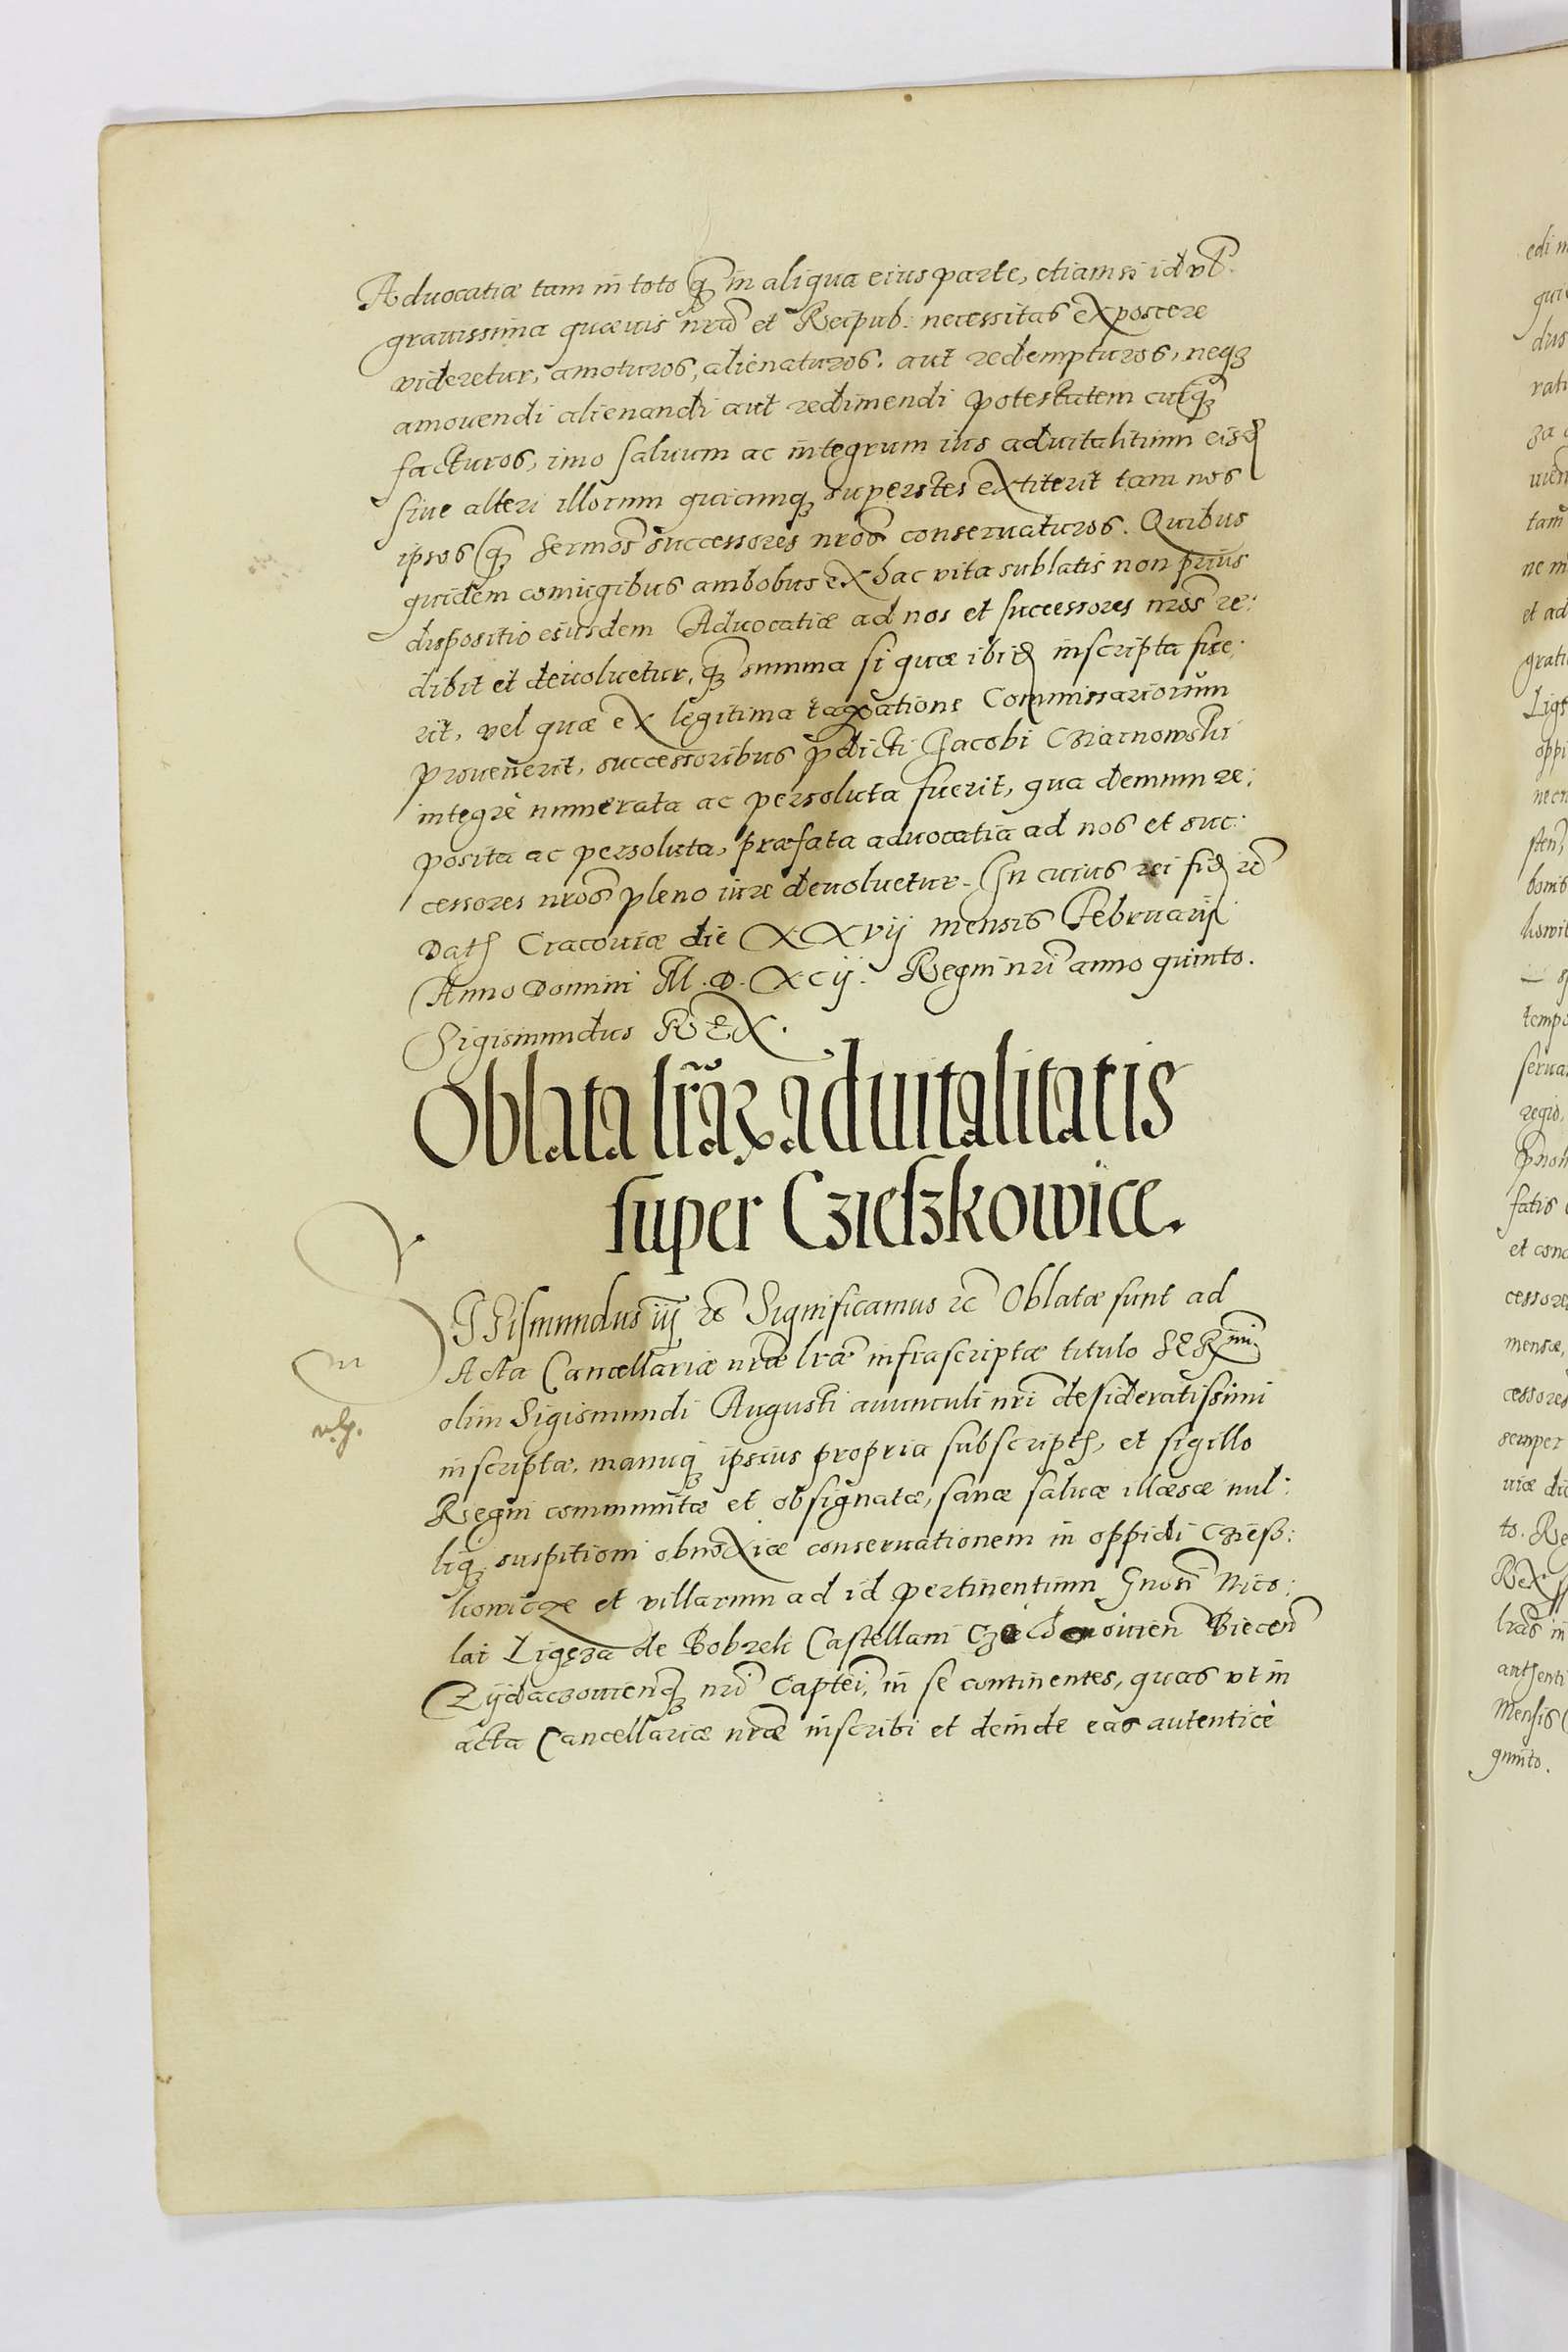 Advocatiæ tam in toto q̃ in aliqua eius parte, etiamsi id vl̃
grauissima quæuis nrã et Reipub: necessitas exposcere
videretur, amoturos, alienaturos, aut redempturos, neqꝫ
amouendi alienandi aut redimendi potestatem cuiq̃
facturos, imo saluum ac integrum ius aduitalitium eisd
siue alteri illorum quicunqꝫ superstes extiterit tam nos
ipsos q̃ Sermos̃ successores nros̃ conseruaturos. Quibus
quidem coniugibus ambobus ex hac vita sublatis non prius
dispositio eiusdem Aduocatiæ ad nos et successores nros̃ re:
dibit et deuoluetur, q̃ summa si quæ ibid inscripta fue:
rit, vel quæ ex legitima taxatione Commissariorum
prouenerit, successoribus p̃dicti Jacobi Czarnowski
integrè numerata ac persoluta fuerit, qua demum re:
posita ac persoluta, præfata aduocatia ad nos et suc:
cessores nros̃ pleno iure deuoluetur. In cuius rei fid rc̃
Dat Cracouiæ die XXvij mensis Februarij
Anno Domini M.D.XCij. Regni nrĩ anno quinto.
Sigismundus REX.
Oblata lr̃aꝝ aduitalitatis
super Czieszkowice.
SIGismundus iij rc̃ Significamus rc̃ Oblatæ sunt ad
Acta Cancellariæ nræ̃ lræ̃ infrascriptæ titulo SERmi
olim Sigismundi Augusti auunculi nrĩ desideratissimi
inscriptæ, manuqꝫ ipsius propria subscript, et sigillo
Regni communitæ et obsignatæ, sanæ saluæ illæsæ nul:
liqꝫ suspitioni obnoxiæ conseruationem in oppidi Czieß:
kowicze et villarum ad id pertinentium Gnosi̇̃ Nico:
lai Ligęza de Bobrek Castellani Czechouien̄ Biecen̄
Zydaczouienqꝫ nrĩ Captei, in se continentes, quas vt in
acta Cancellariæ nræ̃ inscribi et deinde eas autenticè